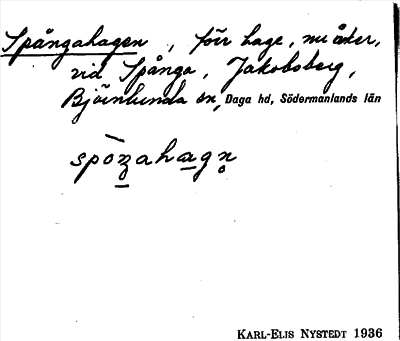 Spångahagen, förr hage, nu åker,
vid Spånga, Jakobsberg,
Björnlunda sn, Daga hd, Södermanlands län
spòŋahagn̥
KARL-ELIS NYSTEDT 1936